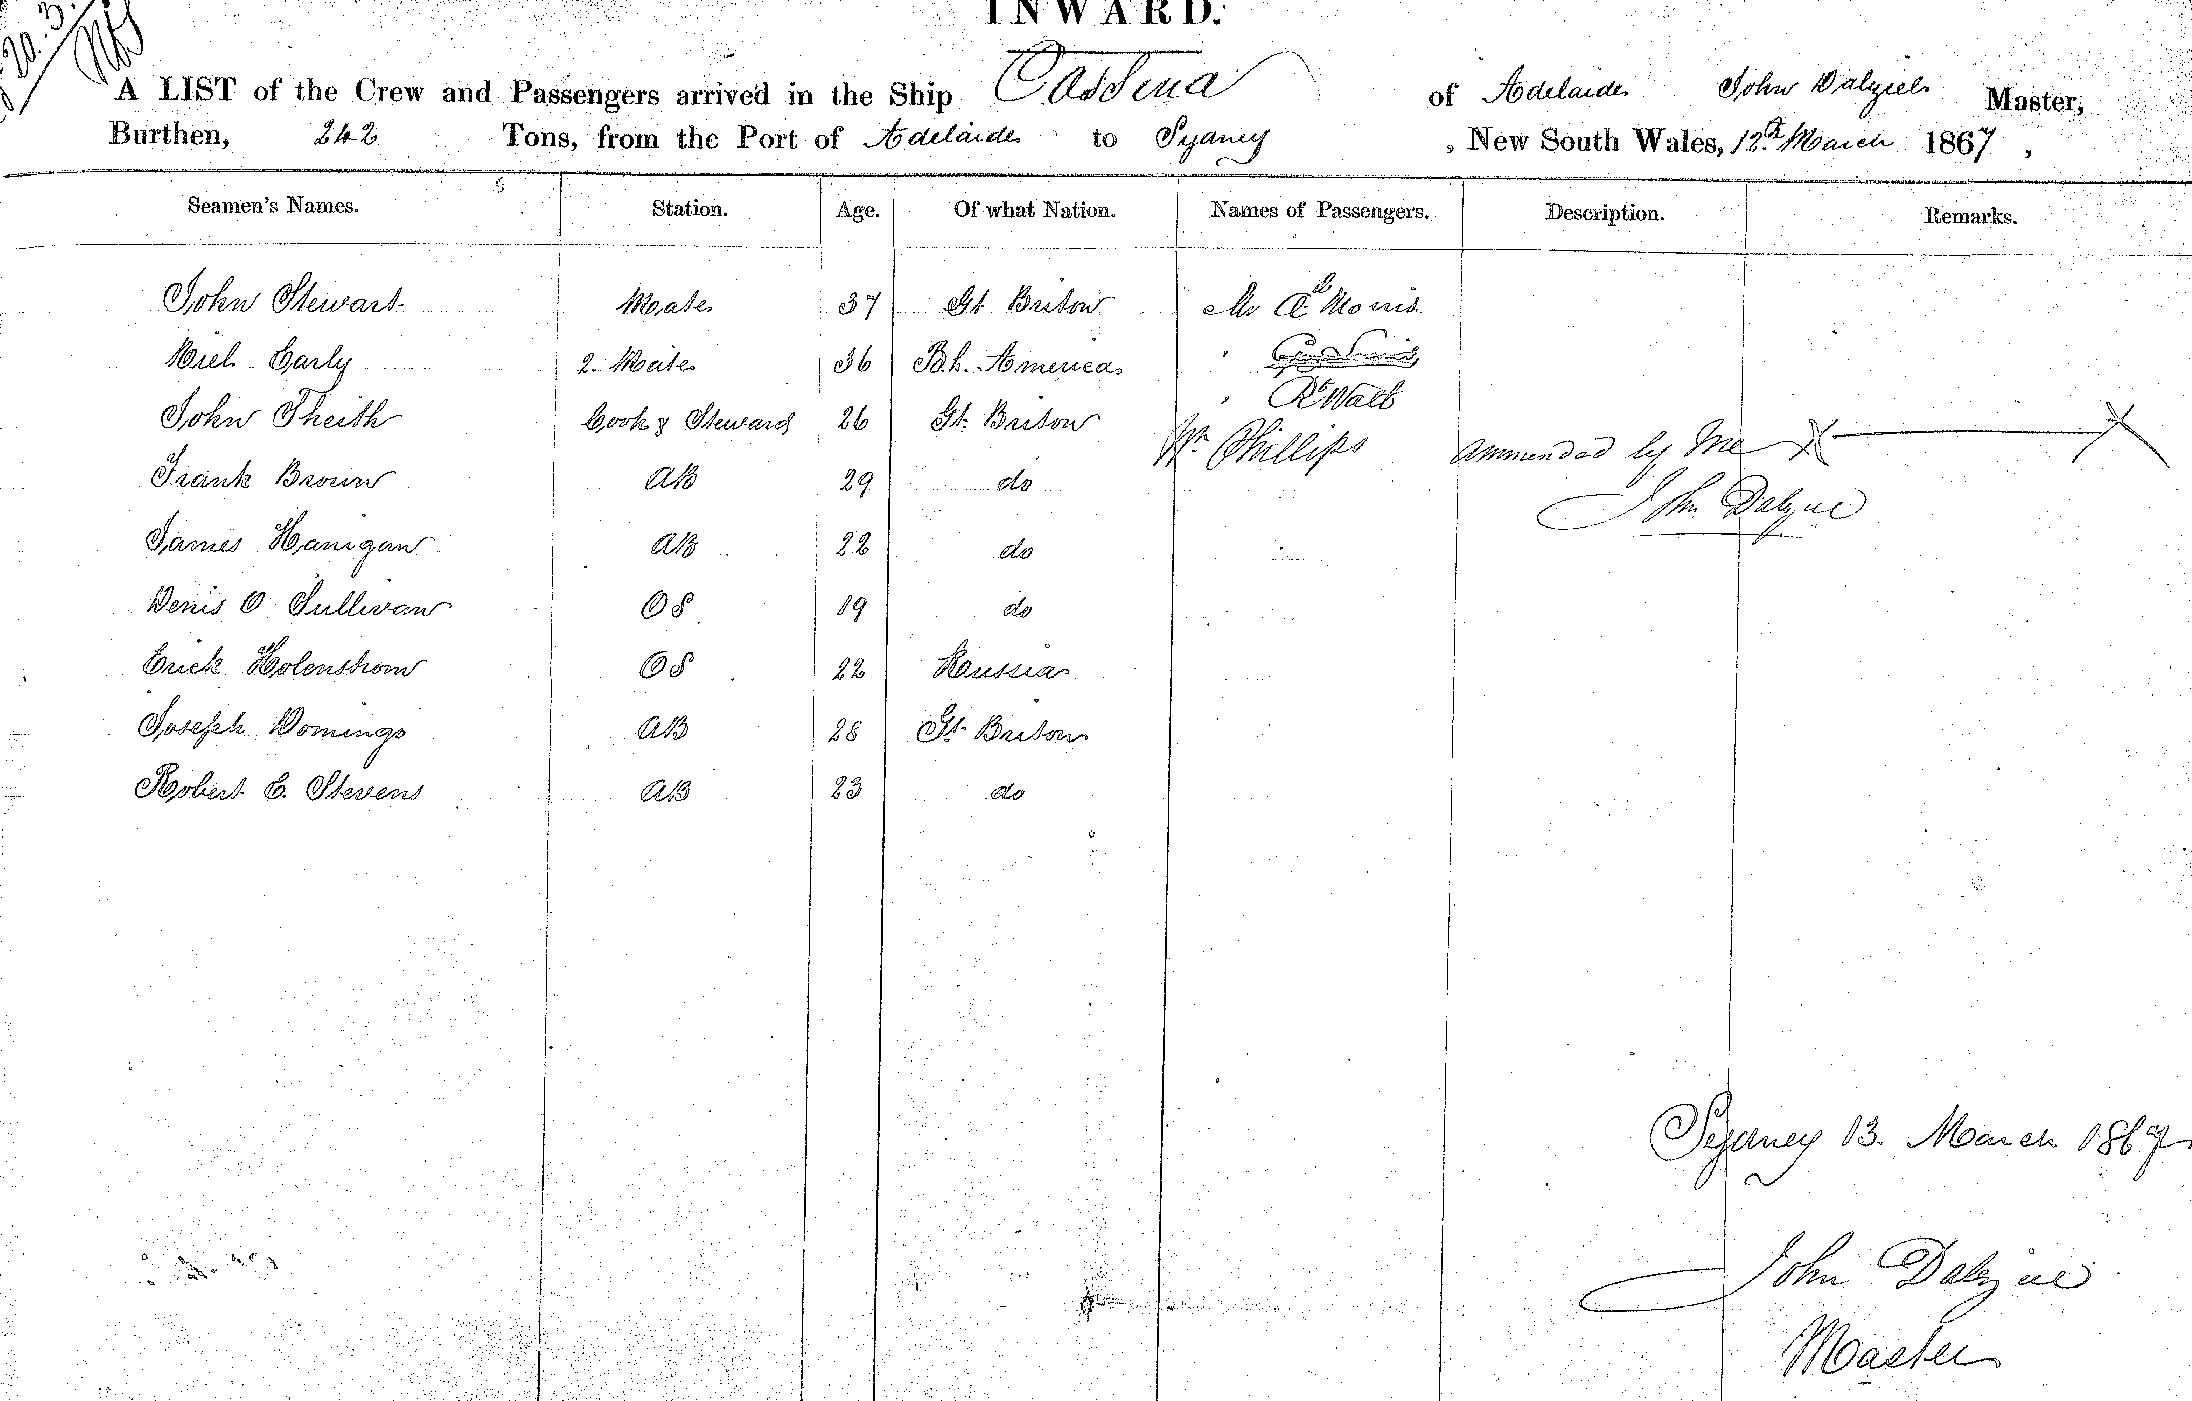 INWARD.
A LIST of the Crew and Passengers arrived in the Ship Cassina of Adelaide John Dalziel Master,
Burthen, 242 Tons, from the Port of Adelaide to Sydney, New South Wales, 12th March 1867,
Seamen's Names. Station. Age. Of what Nation. Names of Passengers. Description. Remarks.
John Stewart Mate 37 Gt Briton Mr Morris
Early 2. Mate 36 B.h. America
John Sheith Cook & Steward 26 Gt. Briton Rt Watt
Wm Phillips ammended by Me
Frank Brown AB 29 do
John Dalziel
James Hanigan AB 22 do
Denis O Sullivan OS 19 do
Erick Holenstrom OS 22 Russia
Joseph Domingo AB 28 Gt. Briton
Robert E. Stevens AB 23 do
Sydney 13. March 1867
John Dalziel
Master